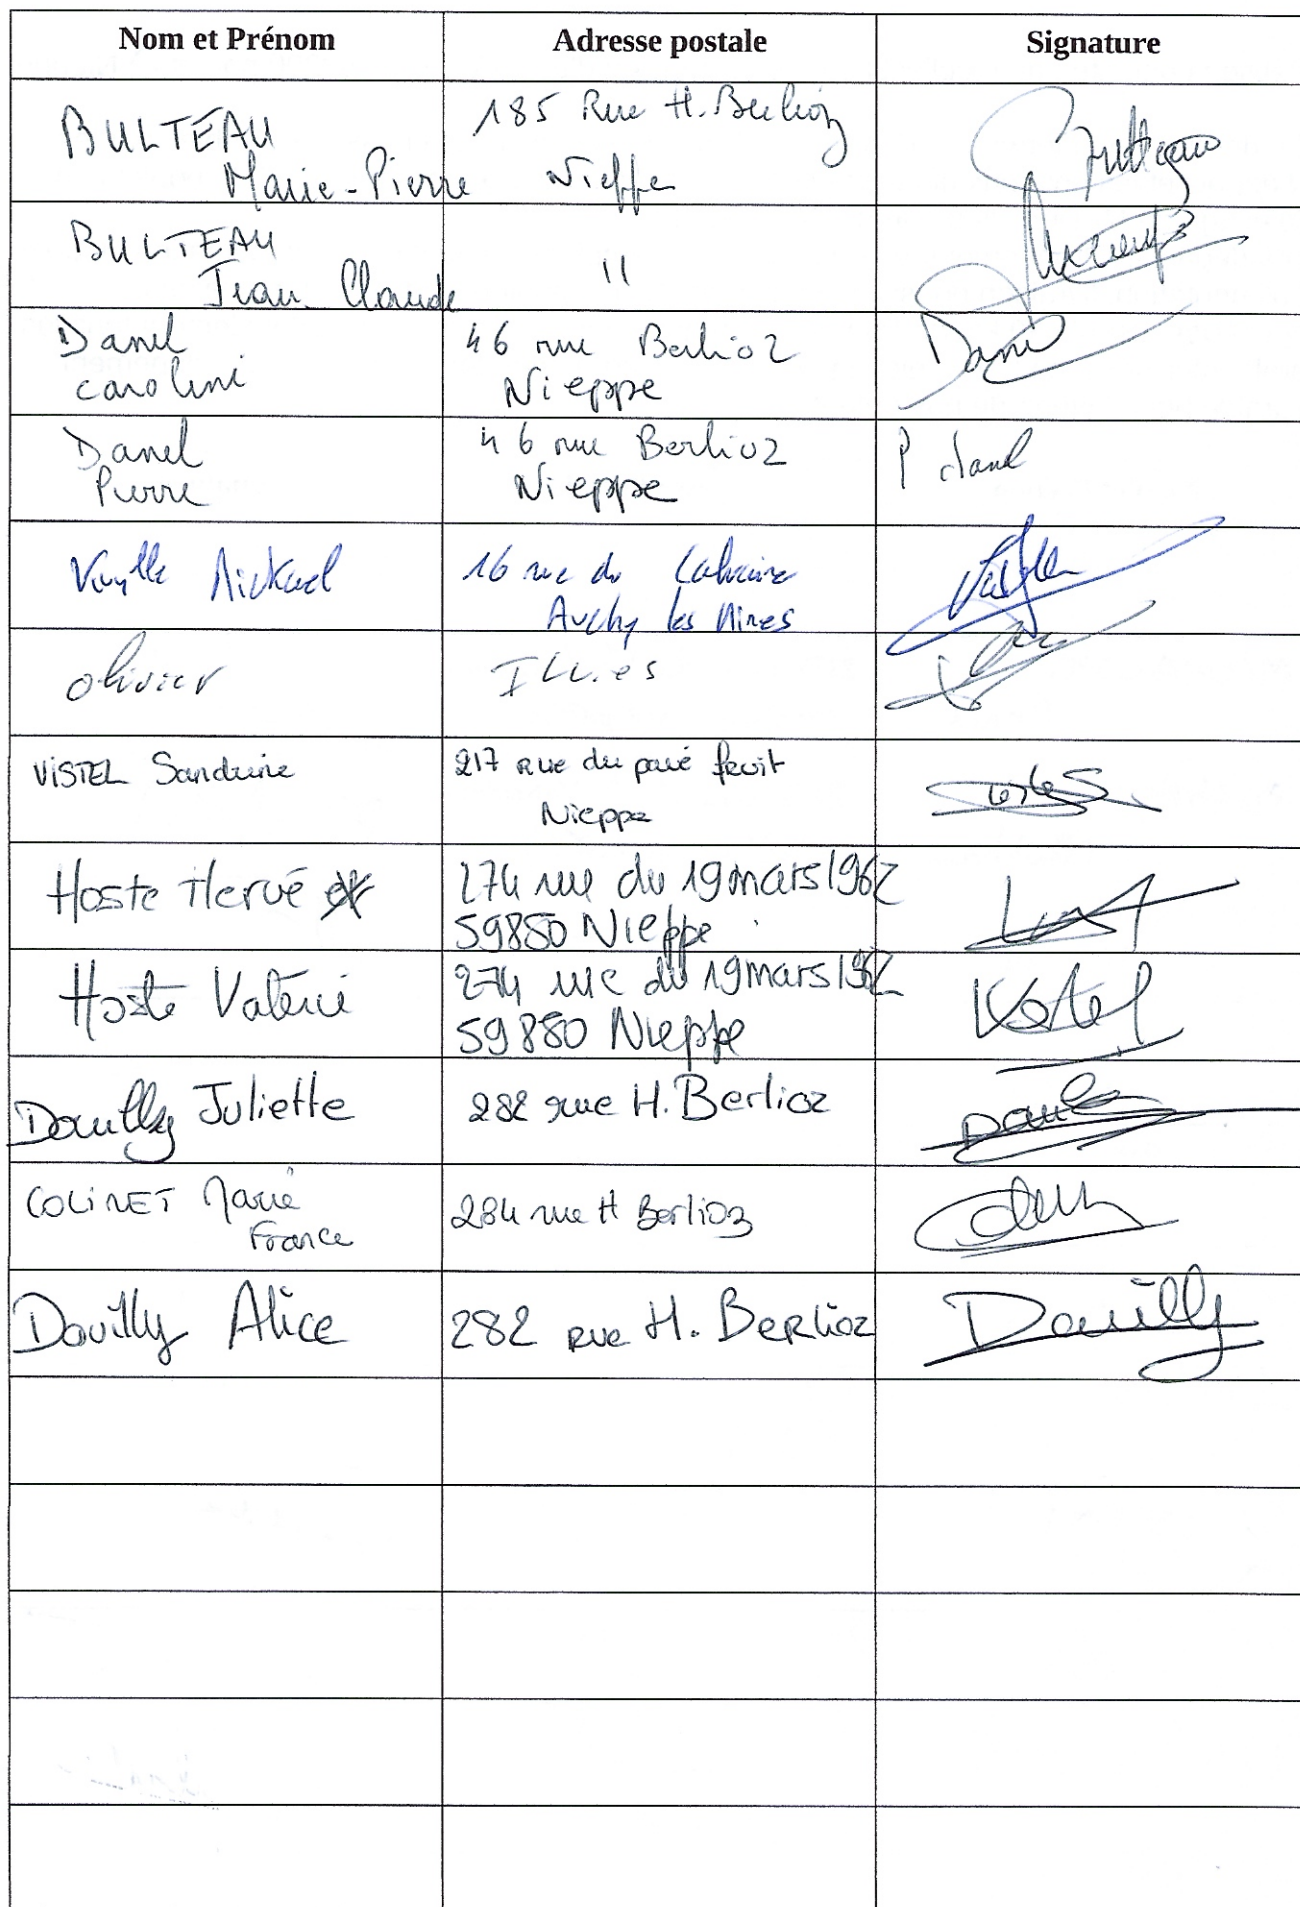 Nom et Prénom Adresse postale Signature
BULTEAU 185 Rue H. Berlioz
Marie-Pierre Nieppe
BULTEAU "
Jean Claude
Danel 46 rue Berlioz
Caroline Nieppe
Danel 46 rue Berlioz P danel
Pierre Nieppe
Mickael 16 rue du Calvaire
Auchy les Mines
olivier Illies
VISTEL Sandrine 217 rue du pavé fruit
Nieppe
Hoste Hervé 274 rue du 19 mars 1962
59850 Nieppe
Hoste Valérie 274 rue du 19 mars 1962
59850 Nieppe
Douilly Juliette 282 rue H. Berlioz
COLINET Marie 284 rue H Berlioz
France
Douilly Alice 282 rue H. Berlioz Douilly